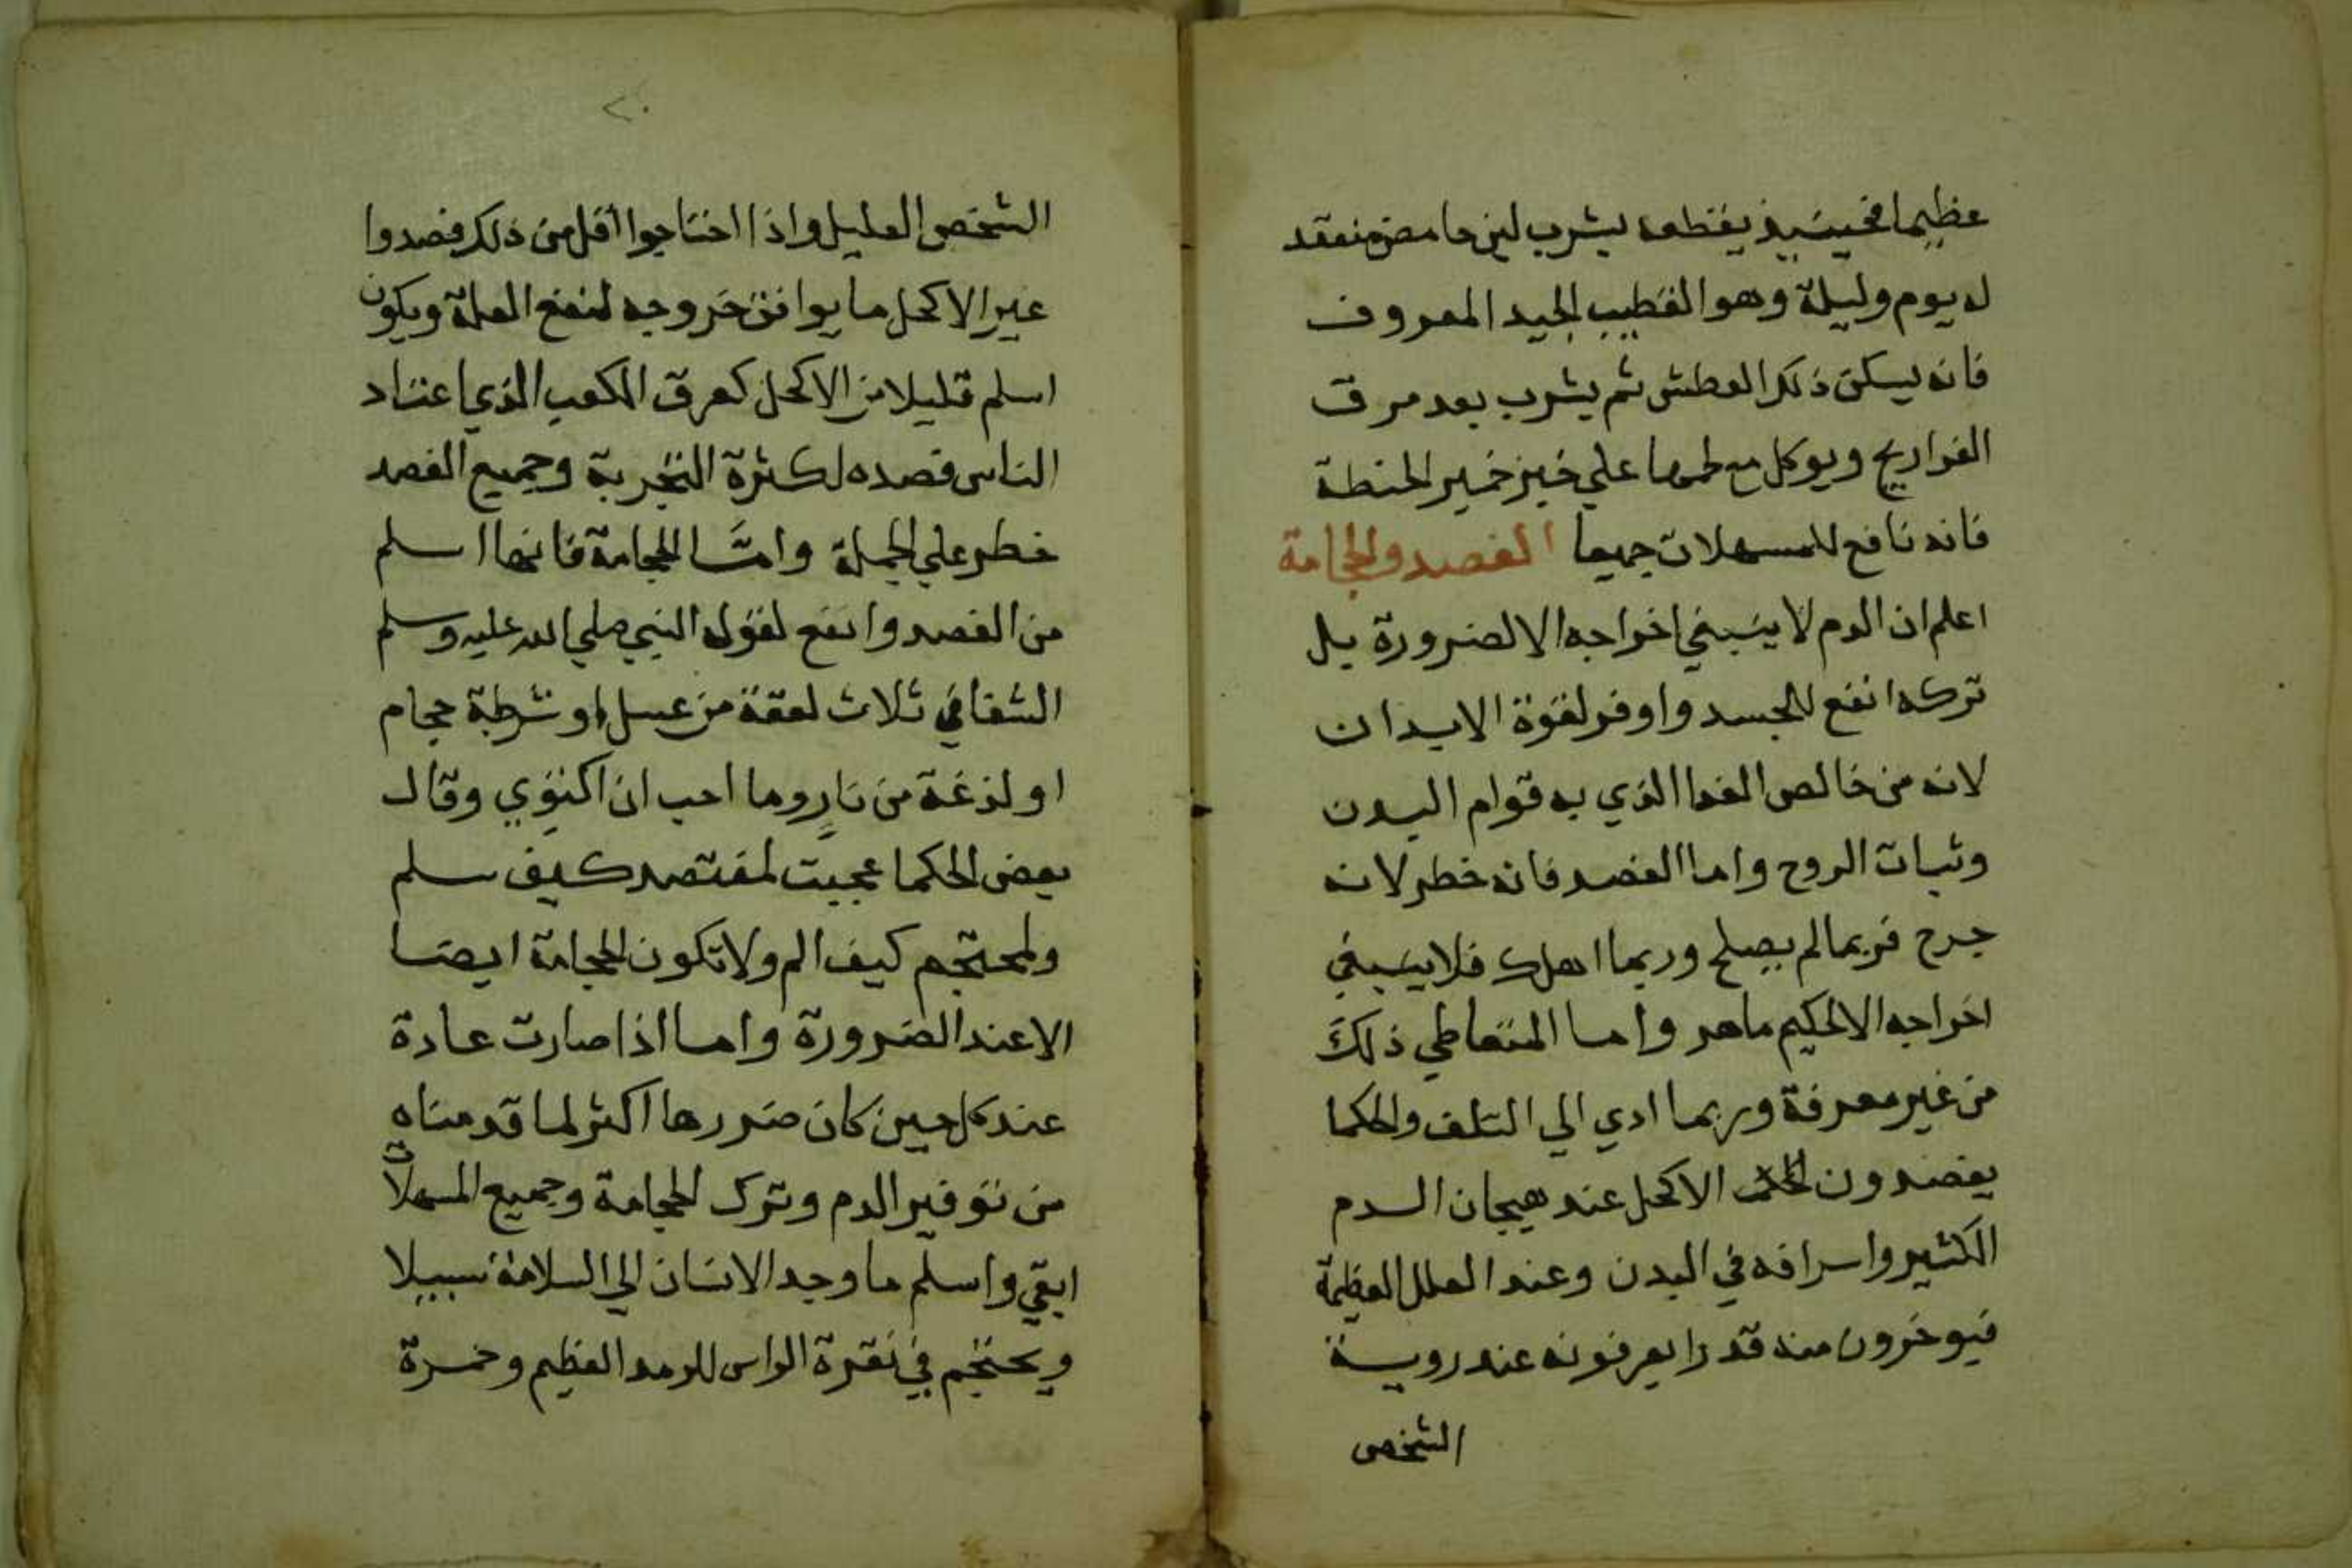 عظيما فحينيذ يقطعه بشرب لبن حامض منعقد
له يوم وليلة وهو القطيب الجيد المعروف
فانه يسكن ذلك العطش ثم يشرب بعد مرق
الفراريج ويوكل مع لحمها علي خبز خمير الحنطة
فانه نافع للمسهلات جميعا الفصد والحجامة
اعلم ان الدم لا ينبغي اخراجه الا لضرورة بل
تركه انفع للجسد واوفر لقوة الابدان
لانه من خالص الغدا الذي به قوام البدن
وثبات الروح واما الفصد فانه خطر لانه
جرح فربما لم يصلح وربما اهلك فلا ينبغي
اخراجه الا لحكيم ماهر واما المتعاطي ذلك
من غير معرفة وربما ادي الي التلف والحكما
يفصدون الاكحل عند هيجان الدم
الكثير واسرافه في البدن وعند العلل العظيمة
فيوخرون منه قدرا يعرفونه عند روية
الشخص
٢٠
الشخص العليل واذا احتاجوا اقل من ذلك فصدوا
غير الاكحل ما يوافق خروجه لنفع العلة ويكون
اسلم قليلا من الاكحل كعرق الكعب الذي اعتاد
الناس فصده لكثرة التجربة وجميع الفصد
خطر علي الجملة وامّا الحجامة فانها اسلم
من الفصد وانفع لقول النبي صلي الله عليه وسلم
الشفا في ثلاث لعقة من عسل او شرطة حجام
او لذغة من نارٍ وما احب ان اكتوي وقال
بعض الحكما عجبت لمفتصد كيف سلم
ولمحتجم كيف الم ولا تكون الحجامة ايضا
الا عند الضرورة واما اذا صارت عادة
عند كل حين كان ضررها اكثر لما قدمناه
من توفير الدم وترك الحجامة وجميع المسهلات
ابقي واسلم ما وجد الانسان الي السلامة سبيلا
ويحتجم في نقرة الراس للرمد العظيم وحمرة